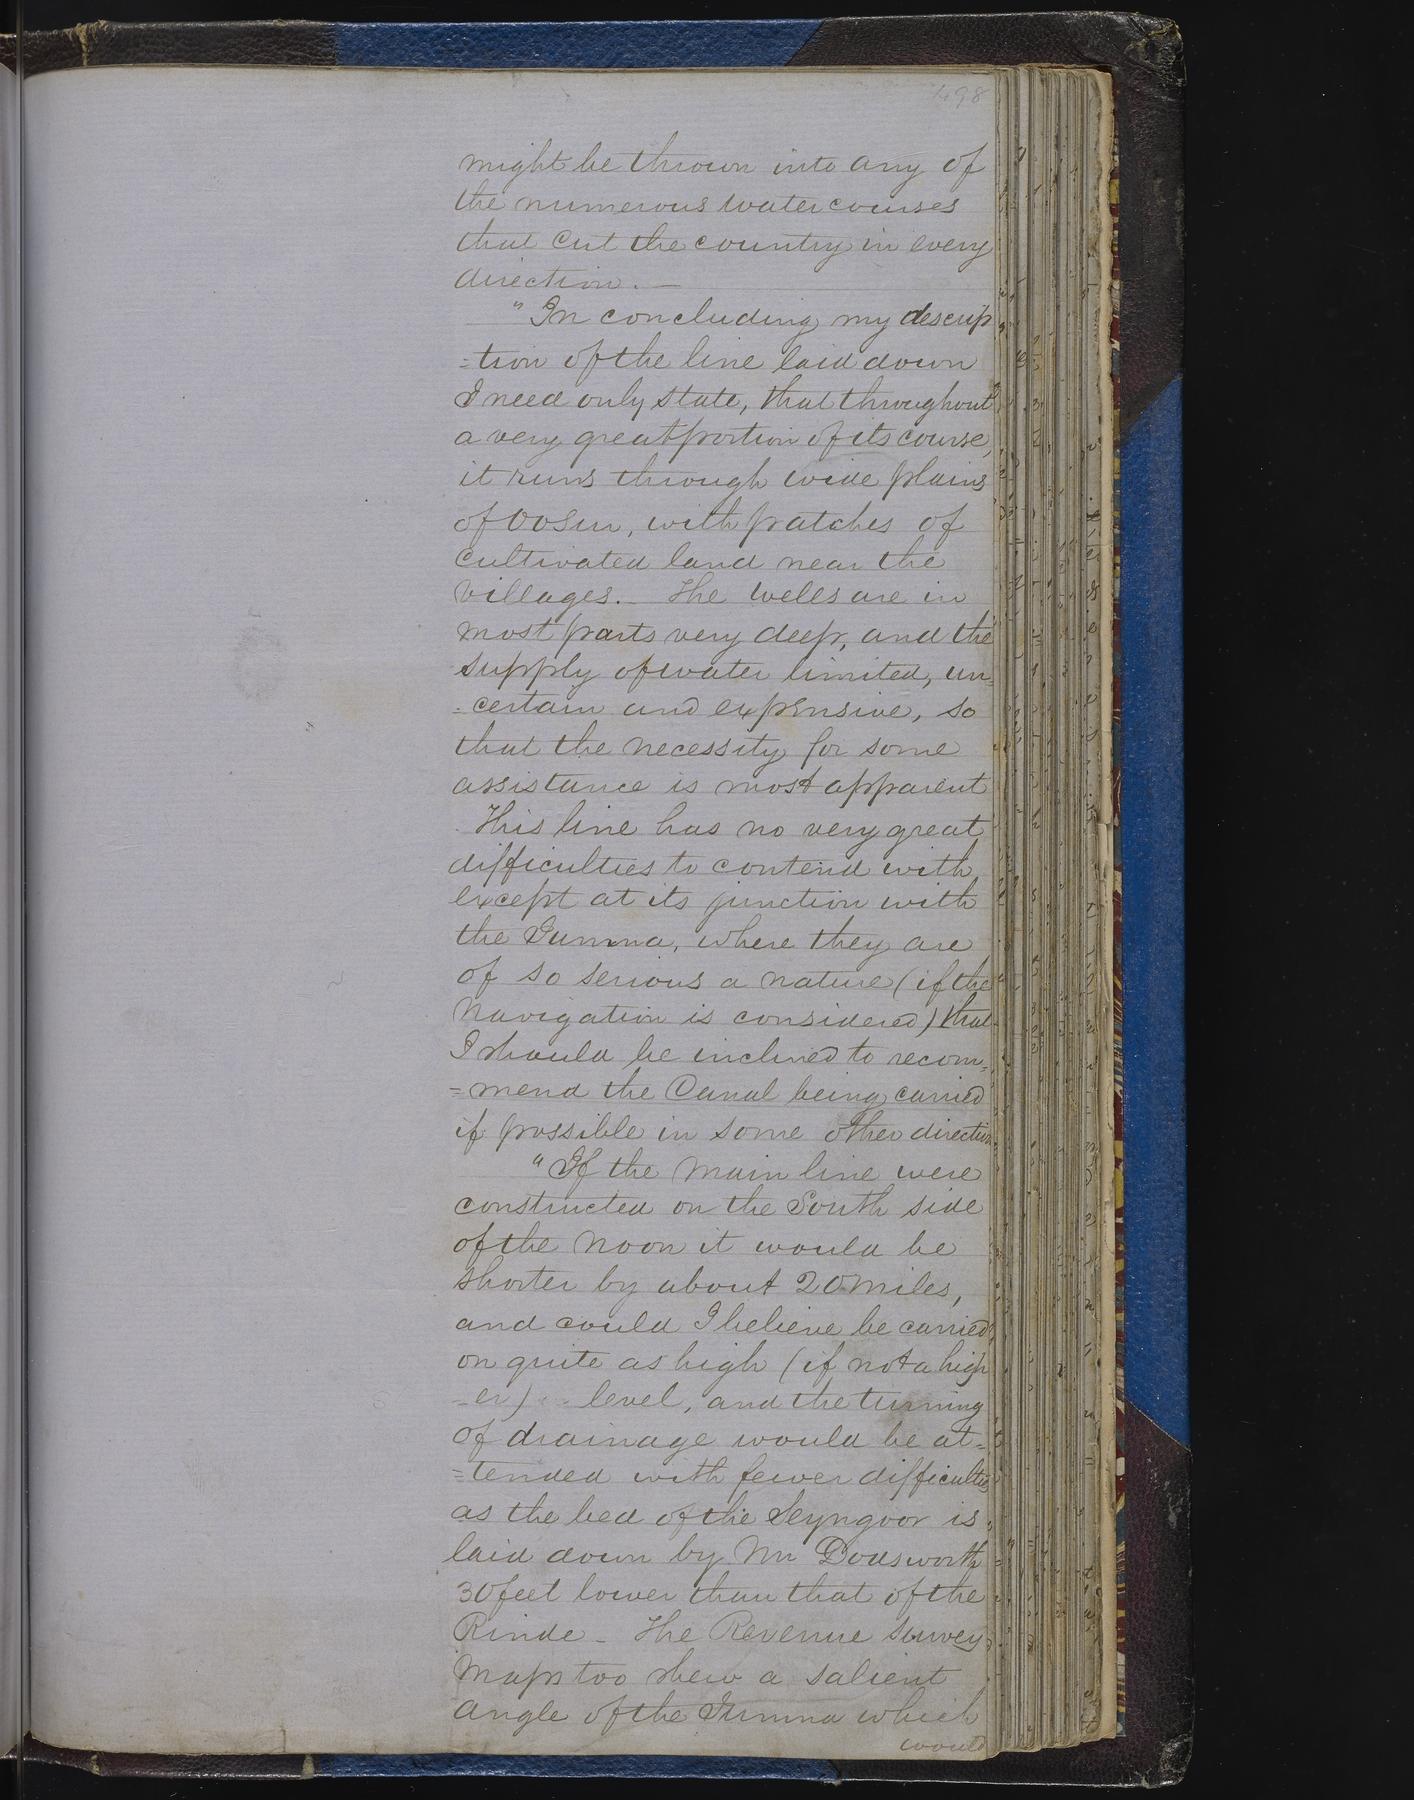 498
might be thrown into any of
the numerous watercourses
that cut the country in every
direction. —
" In concluding my descrip
=tion of the line laid down
I need only state, that throughout
a very great portion of its course,
it runs through wide plains
of Oosur, with patches of
cultivated land near the
villages. — The wells are in
most parts very deep, and the
supply of water limited, un=
=certain and expensive, so
that the necessity for some
assistance is most apparent
This line has no very great
difficulties to contend with
except at its junction with
the Jumna, where they are
of so serious a nature (if the
navigation is considered) that
I should be inclined to recom=
=mend the Canal being carried
if possible in some other direction
" If the main line were
constructed on the South side
of the Noon it would be
shorter by about 20 miles,
and could I believe be carried
on quite as high (if not a high
-er) level, and the turning
of drainage would be at=
=tended with fewer difficulties
as the bed of the Seyngoor is
laid down by Mr Dodsworth
30 feet lower than that of the
Rinde – The Revenue Survey
Maps too shew a salient
angle of the Jumna which
would